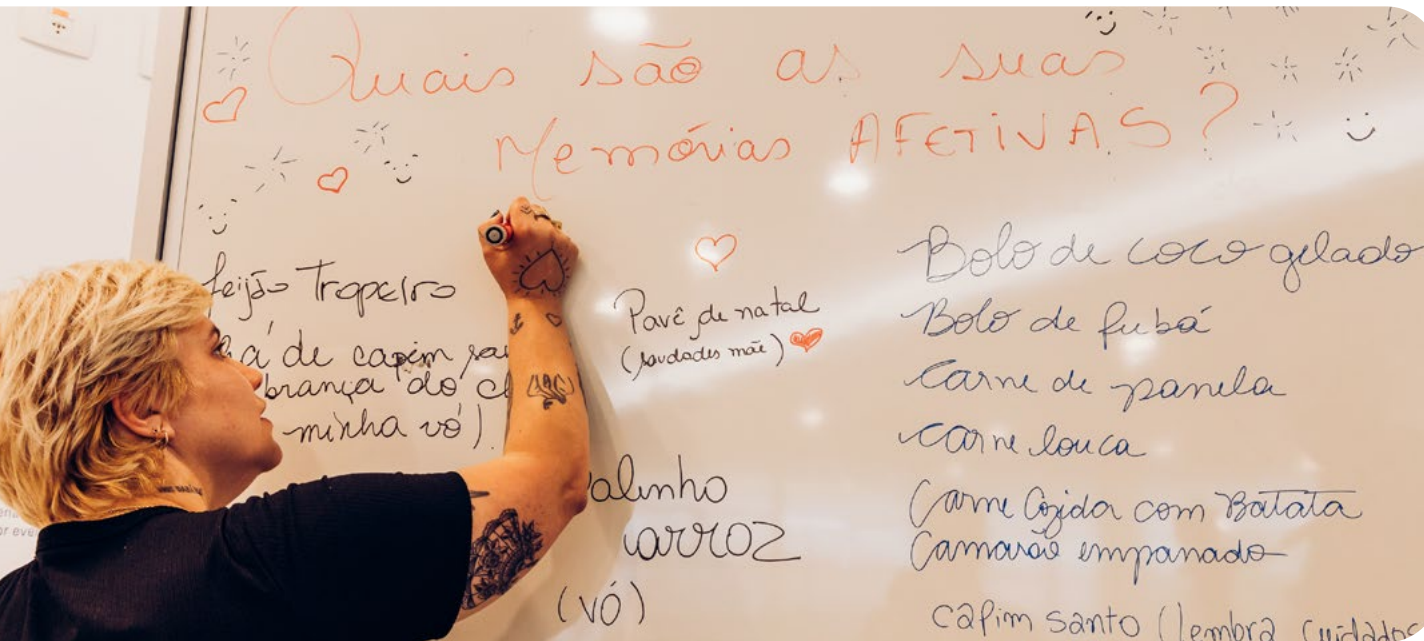 Quais são as suas
Memórias AFETIVAS?
feijão Tropeiro
de capim
brança do
minha vó).
Pavê de natal
(saudades mãe)
alinho
arroz
(VÓ)
Bolo de coco gelado
Bolo de fubá
Carne de panela
Carne louca
Carne Cozida com Batata
Camarão empanado
capim santo (lembra cuidados